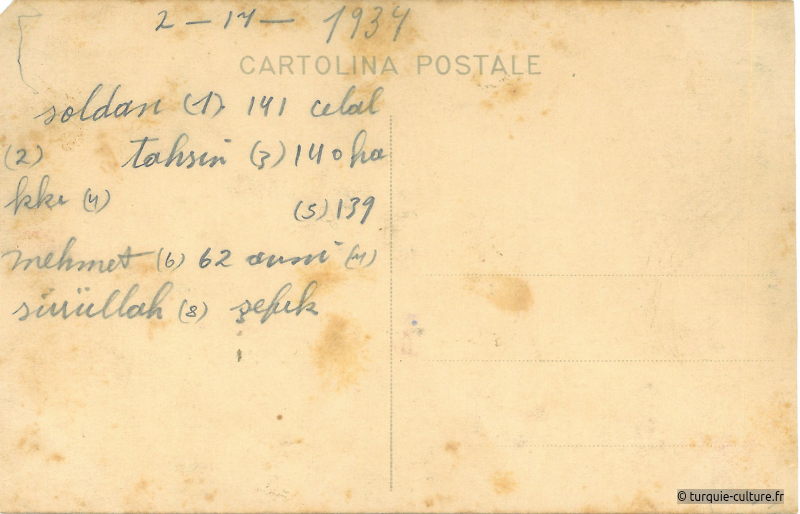 2 - 14 - 1934
CARTOLINA POSTALE
soldan (1) 141 celal
(2) tahsin (3) 140 ha
kkı (4) (5) 139
mehmet (6) 62 avni (4)
sırrüllah (8) şefik
© turquie-culture.fr